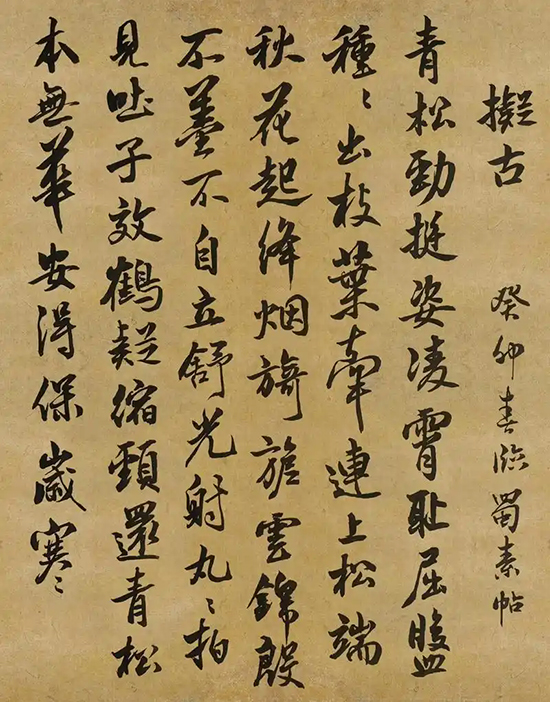 擬古 癸卯春臨蜀素帖
青松勁挺姿凌霄耻屈盤
種〻出枝葉牽連上松端
秋花起絳烟旖旎雲錦殷
不羞不自立舒光射丸〻柏
見吐子效鶴疑縮頸還青松
本無華安得保歲寒